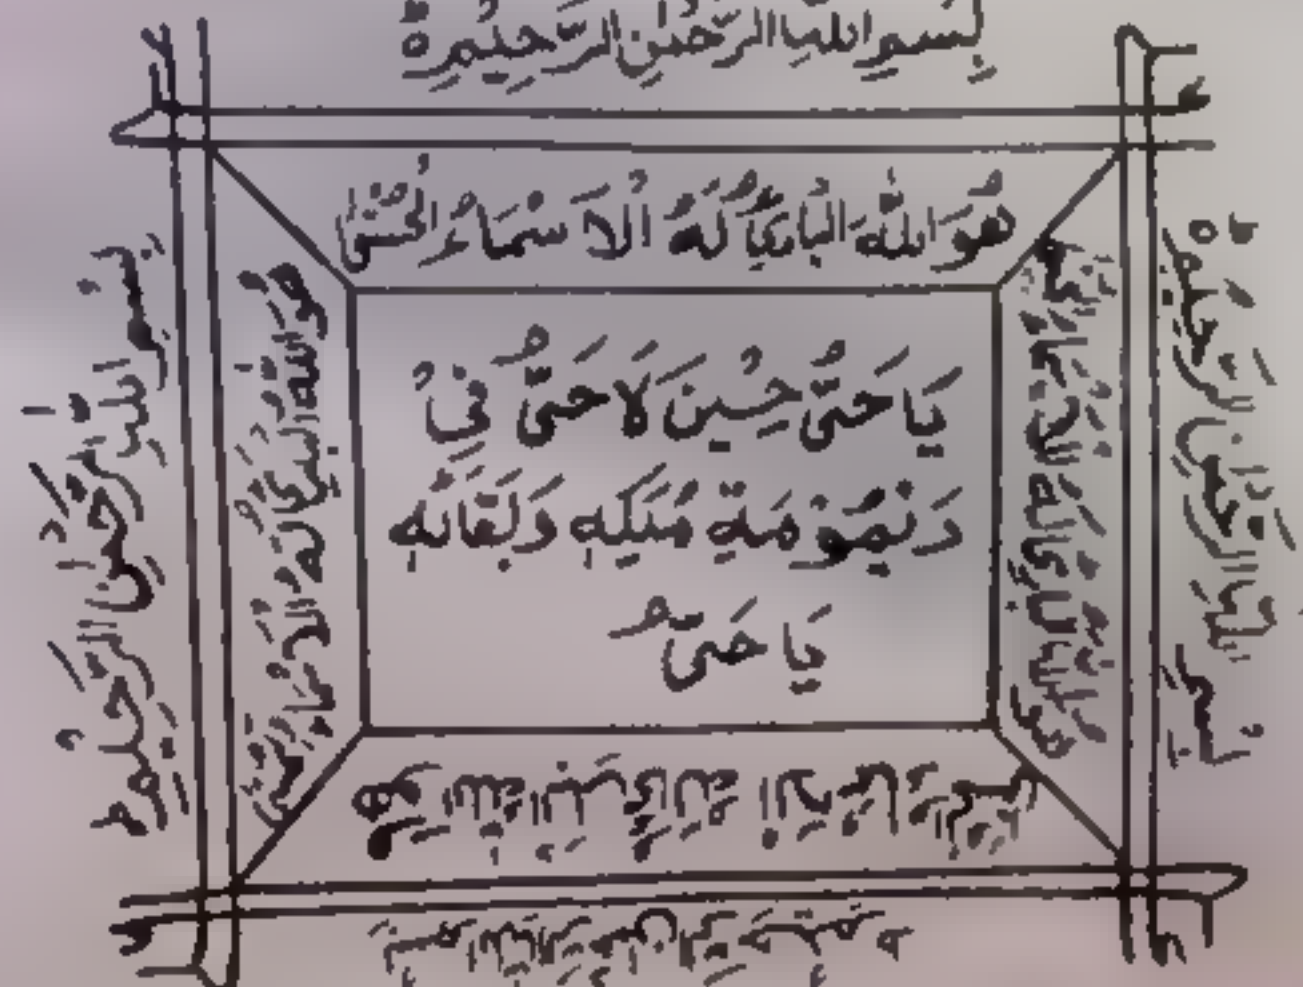 بِسْمِ اللّٰهِ الرَّحْمٰنِ الرَّحِيْمِ ۃ
هُوَ اللّٰهُ الْبَارِئُ لَهُ الْاَسْمَاءُ الْحُسْنٰى
يَا حَىُّ حِيْنَ لَا حَىَّ فِىْ
دَيْمُوْمَةِ مُلْكِهٖ وَبَقَائِهٖ
يَا حَىُّ
بِسْمِ اللّٰهِ الرَّحْمٰنِ الرَّحِيْمِ
هُوَ اللّٰهُ الْبَارِئُ لَهُ الْاَسْمَاءُ الْحُسْنٰى
هُوَ اللّٰهُ الْبَارِئُ لَهُ الْاَسْمَاءُ الْحُسْنٰى
بِسْمِ اللّٰهِ الرَّحْمٰنِ الرَّحِيْمِ
هُوَ اللّٰهُ الْبَارِئُ لَهُ الْاَسْمَاءُ الْحُسْنٰى
بِسْمِ اللّٰهِ الرَّحْمٰنِ الرَّحِيْمِ